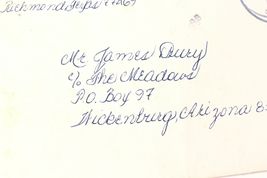 Richmond, Texas 77469
Mr. James Drury
c/o The Meadows
P.O. Box 97
Wickenburg, Arizona 8